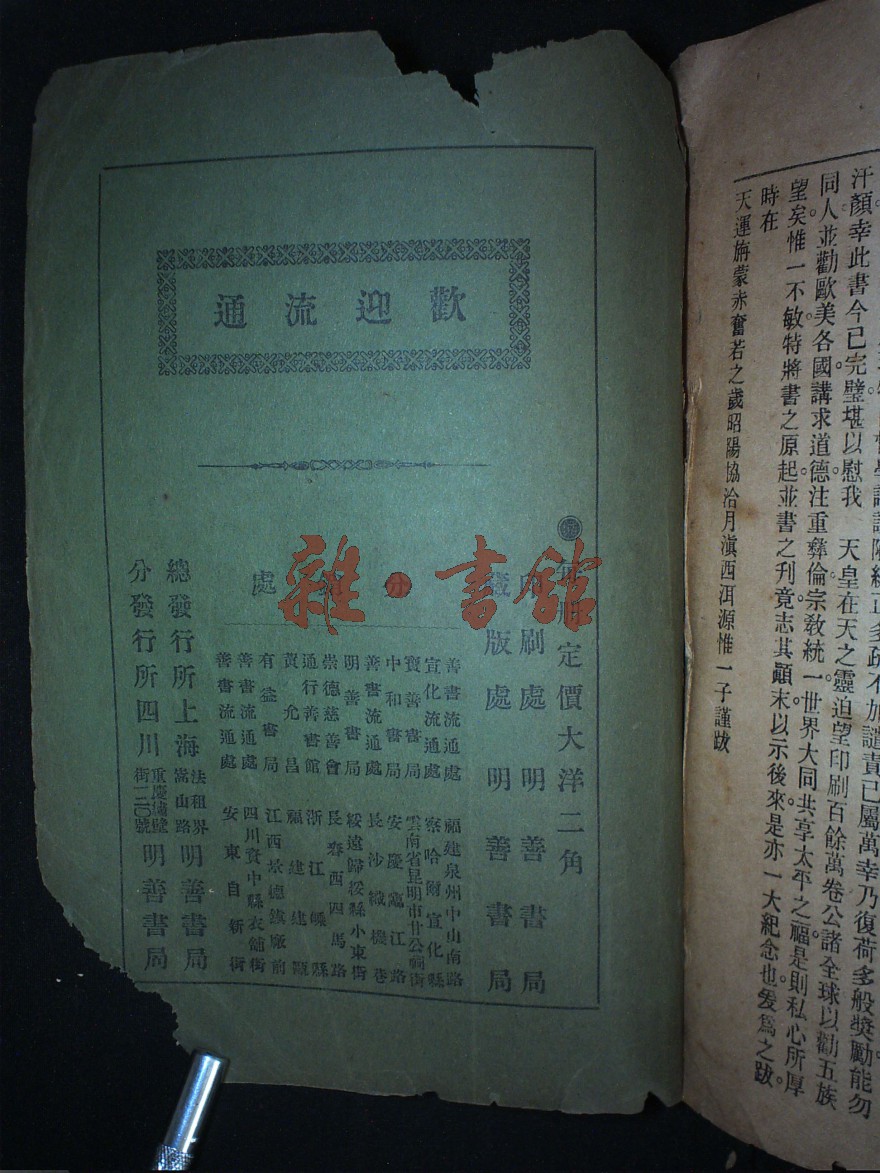 多疏不加譴責已屬萬幸乃復荷多般獎勵能勿
汗顏幸此書今已完璧堪以慰我 天皇在天之靈迫望印刷百餘萬卷公諸全球以勸五族
同人並勸歐美各國講求道德注重彝倫宗教統一世界大同共享太平之福是則私心所厚
望矣惟一不敏特將書之原起並書之刊竟志其顛末以示後來是亦一大紀念也爰爲之跋。
時在
天運旃蒙赤奮若之歲昭陽協洽月滇西洱源惟一子謹跋
歡迎流通
每冊定價大洋二角
印刷處明善書局
藏版處明善書局
分 處
善書流通處 福建泉州中山南路
宣化流通處 察哈爾宣化縣
寶善書局 雲南省昆明市廿公祠街
中和書局 安慶臨江路
善書流通處 長沙織機巷
明善書局 綏遠歸綏縣小東街
崇德慈善會 長春西四馬路
通行善書館 浙江 縣
黃允昌 福建建甌
有益書局 江西景德鎮廠前
善書流通處 四川資中縣衣舖街
善書流通處 安東自新街
總發行所上海 法租界嵩山路 明善書局
分發行所四川 重慶 街一二〇號 明善書局
雜·書館